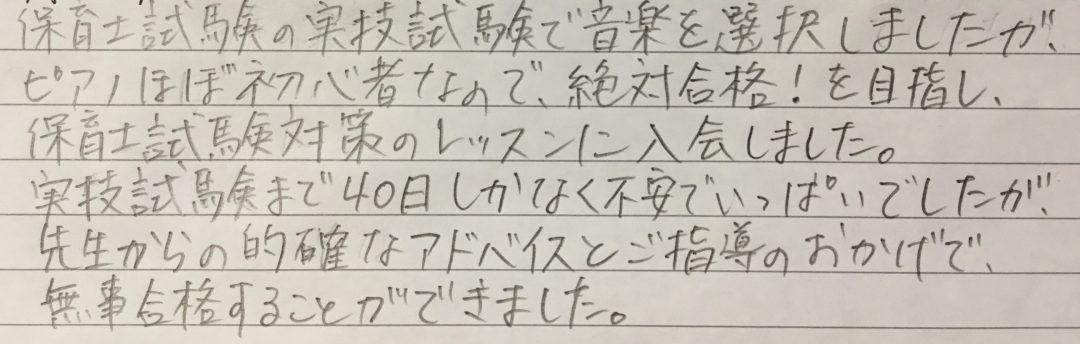 保育士試験の実技試験で音楽を選択しましたが、
ピアノほぼ初心者なので、絶対合格！を目指し、
保育士試験対策のレッスンに入会しました。
実技試験まで40日しかなく不安でいっぱいでしたが、
先生からの的確なアドバイスとご指導のおかげで、
無事合格することができました。